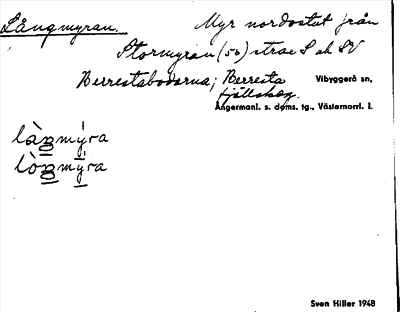 Långmyran. Myr nordostut från
Stormyran (56) strax S och SV
Herrestabodarna; Herresta Vibyggerå sn,
fjällskog.
Ångermanl. s. doms. tg., Västernorrl. l.
làngmýra
lòngmýra
Sven Hiller 1948